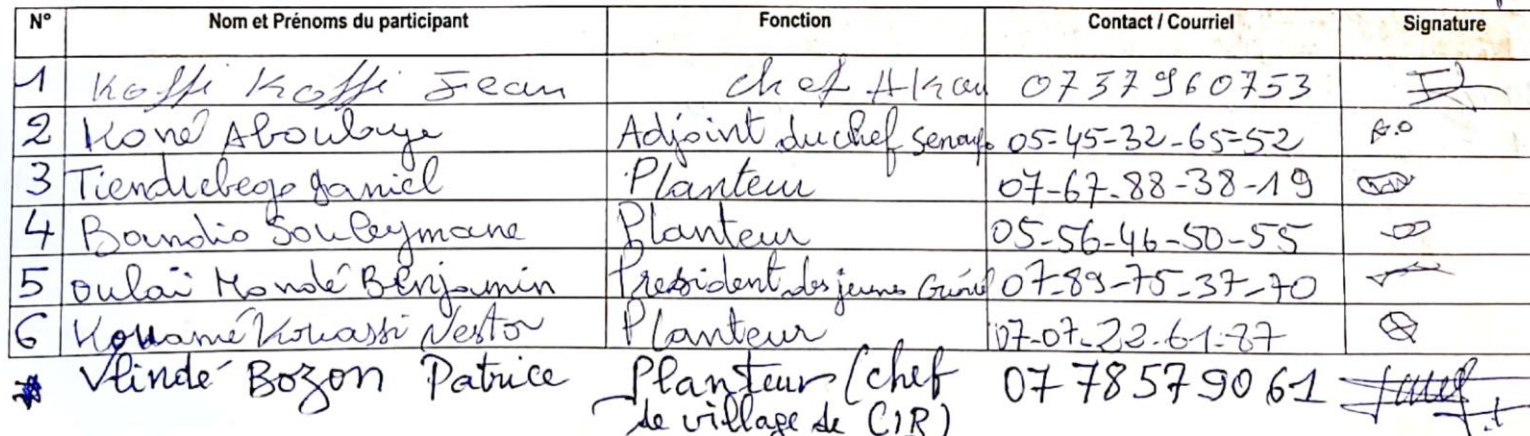 N° Nom et Prénoms du participant Fonction Contact / Courriel Signature
1 Koffi Koffi Jean chef Akan 0737960753
2 Koné Aboulaye Adjoint du chef 05-45-32-65-52 A.O
3 Tiendrebeogo Daniel Planteur 07-67-88-38-19
4 Bandio Souleymane Planteur 05-56-46-50-55
5 Oulaï Mondé Benjamin President des jeunes Guéré 07-89-75-37-70
6 Kouamé Kouassi Nestor Planteur 07-07-22-61-87
Vlindé Bozon Patrice Planteur (chef 07 78579061
de village de CIR)